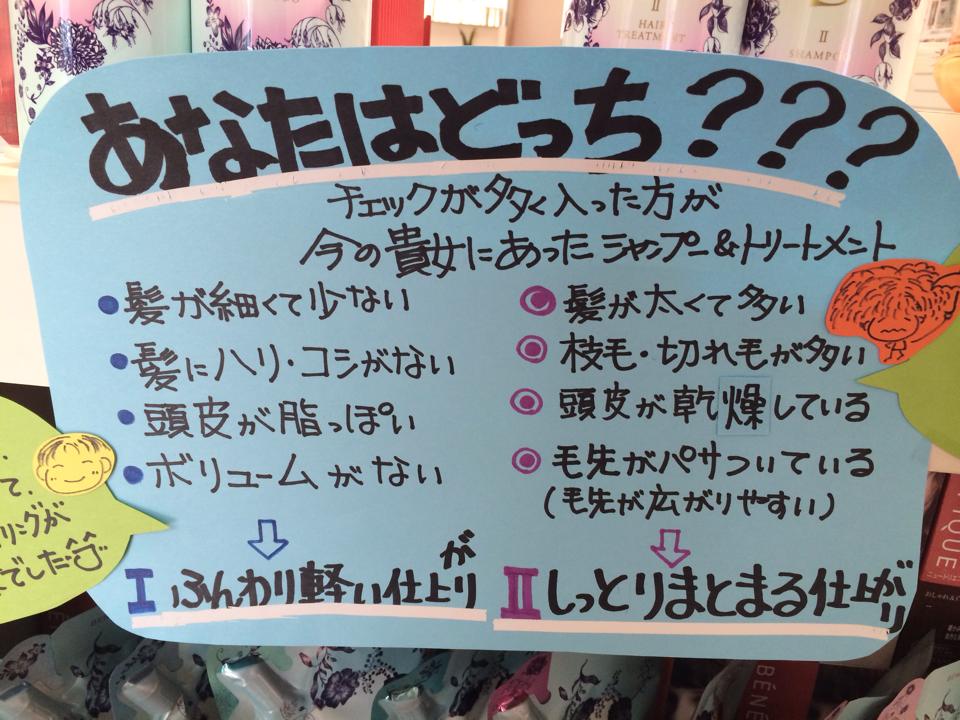 II
HAIR
TREATMENT
II
SHAMPO
あなたはどっち???
チェックが多く入った方が
今の貴女にあったシャンプー&トリートメント
●髪が細くて少ない
●髪にハリ・コシがない
●頭皮が脂っぽい
●ボリュームがない
⇩
I ふんわり軽い仕上がり
◉髪が太くて多い
◉枝毛・切れ毛が多い
◉頭皮が乾燥している
◉毛先がパサついている
(毛先が広がりやすい)
⇩
II しっとりまとまる仕上がり
て、
リングが
でした
QUE
BÉNÉ